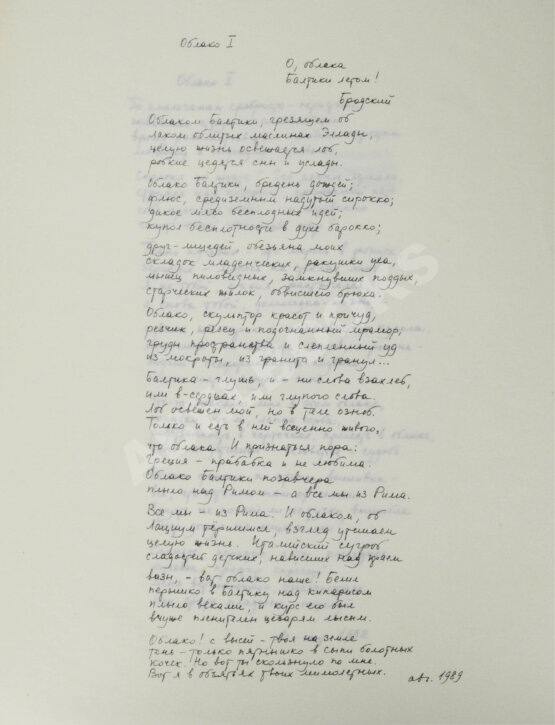 Облако I
О, облака
Балтики летом!
Бродский
Облаком Балтики, грезящем об
лаком облитых маслинах Эллады,
целую жизнь освещается лоб,
робкие цедятся сны и услады.
Облако Балтики, бредень дождей;
флюс, средиземным надутый сирокко;
дикое мясо бесплодных идей;
купол бесплотности в духе барокко;
друг-лицедей, обезьяна моих
складок младенческих, ракушки уха,
мышц пиловидных, замкнувших поддых,
старческих жилок, обвисшего брюха.
Облако, скульптор красот и причуд,
резчик, резец и подогнанный мрамор,
груды пространства и слепленный суд
из мокроты, из гранита и гранул...
Балтика - глушь, и - ни слова взахлеб,
или в-сердцах, или глупого слова.
Лоб освещен мой, но в теле озноб.
Только и есть в ней всеценно живого,
что облака. И признаться пора:
Греция - прабабка и не любима.
Облако Балтики позавчера
плыло над Римом - а все мы из Рима.
Все мы - из Рима. И облаком, об
Лациум тершимся, взгляд утешаем
целую жизнь. Италийский сугроб
сладостей детских, нависших над краем
вазы, - вот облако наше! Белы
перышко в Балтику над кипарисом
плыло веками, и курс его был
вчуже пленителен цезарям лысым.
Облако! с высей - твоя на земле
тень - только пятнышко в сыпи болотных
кочек. Но вот ты скользнуло по мне.
Вот я в объятьях твоих мимолетных.
авг. 1989